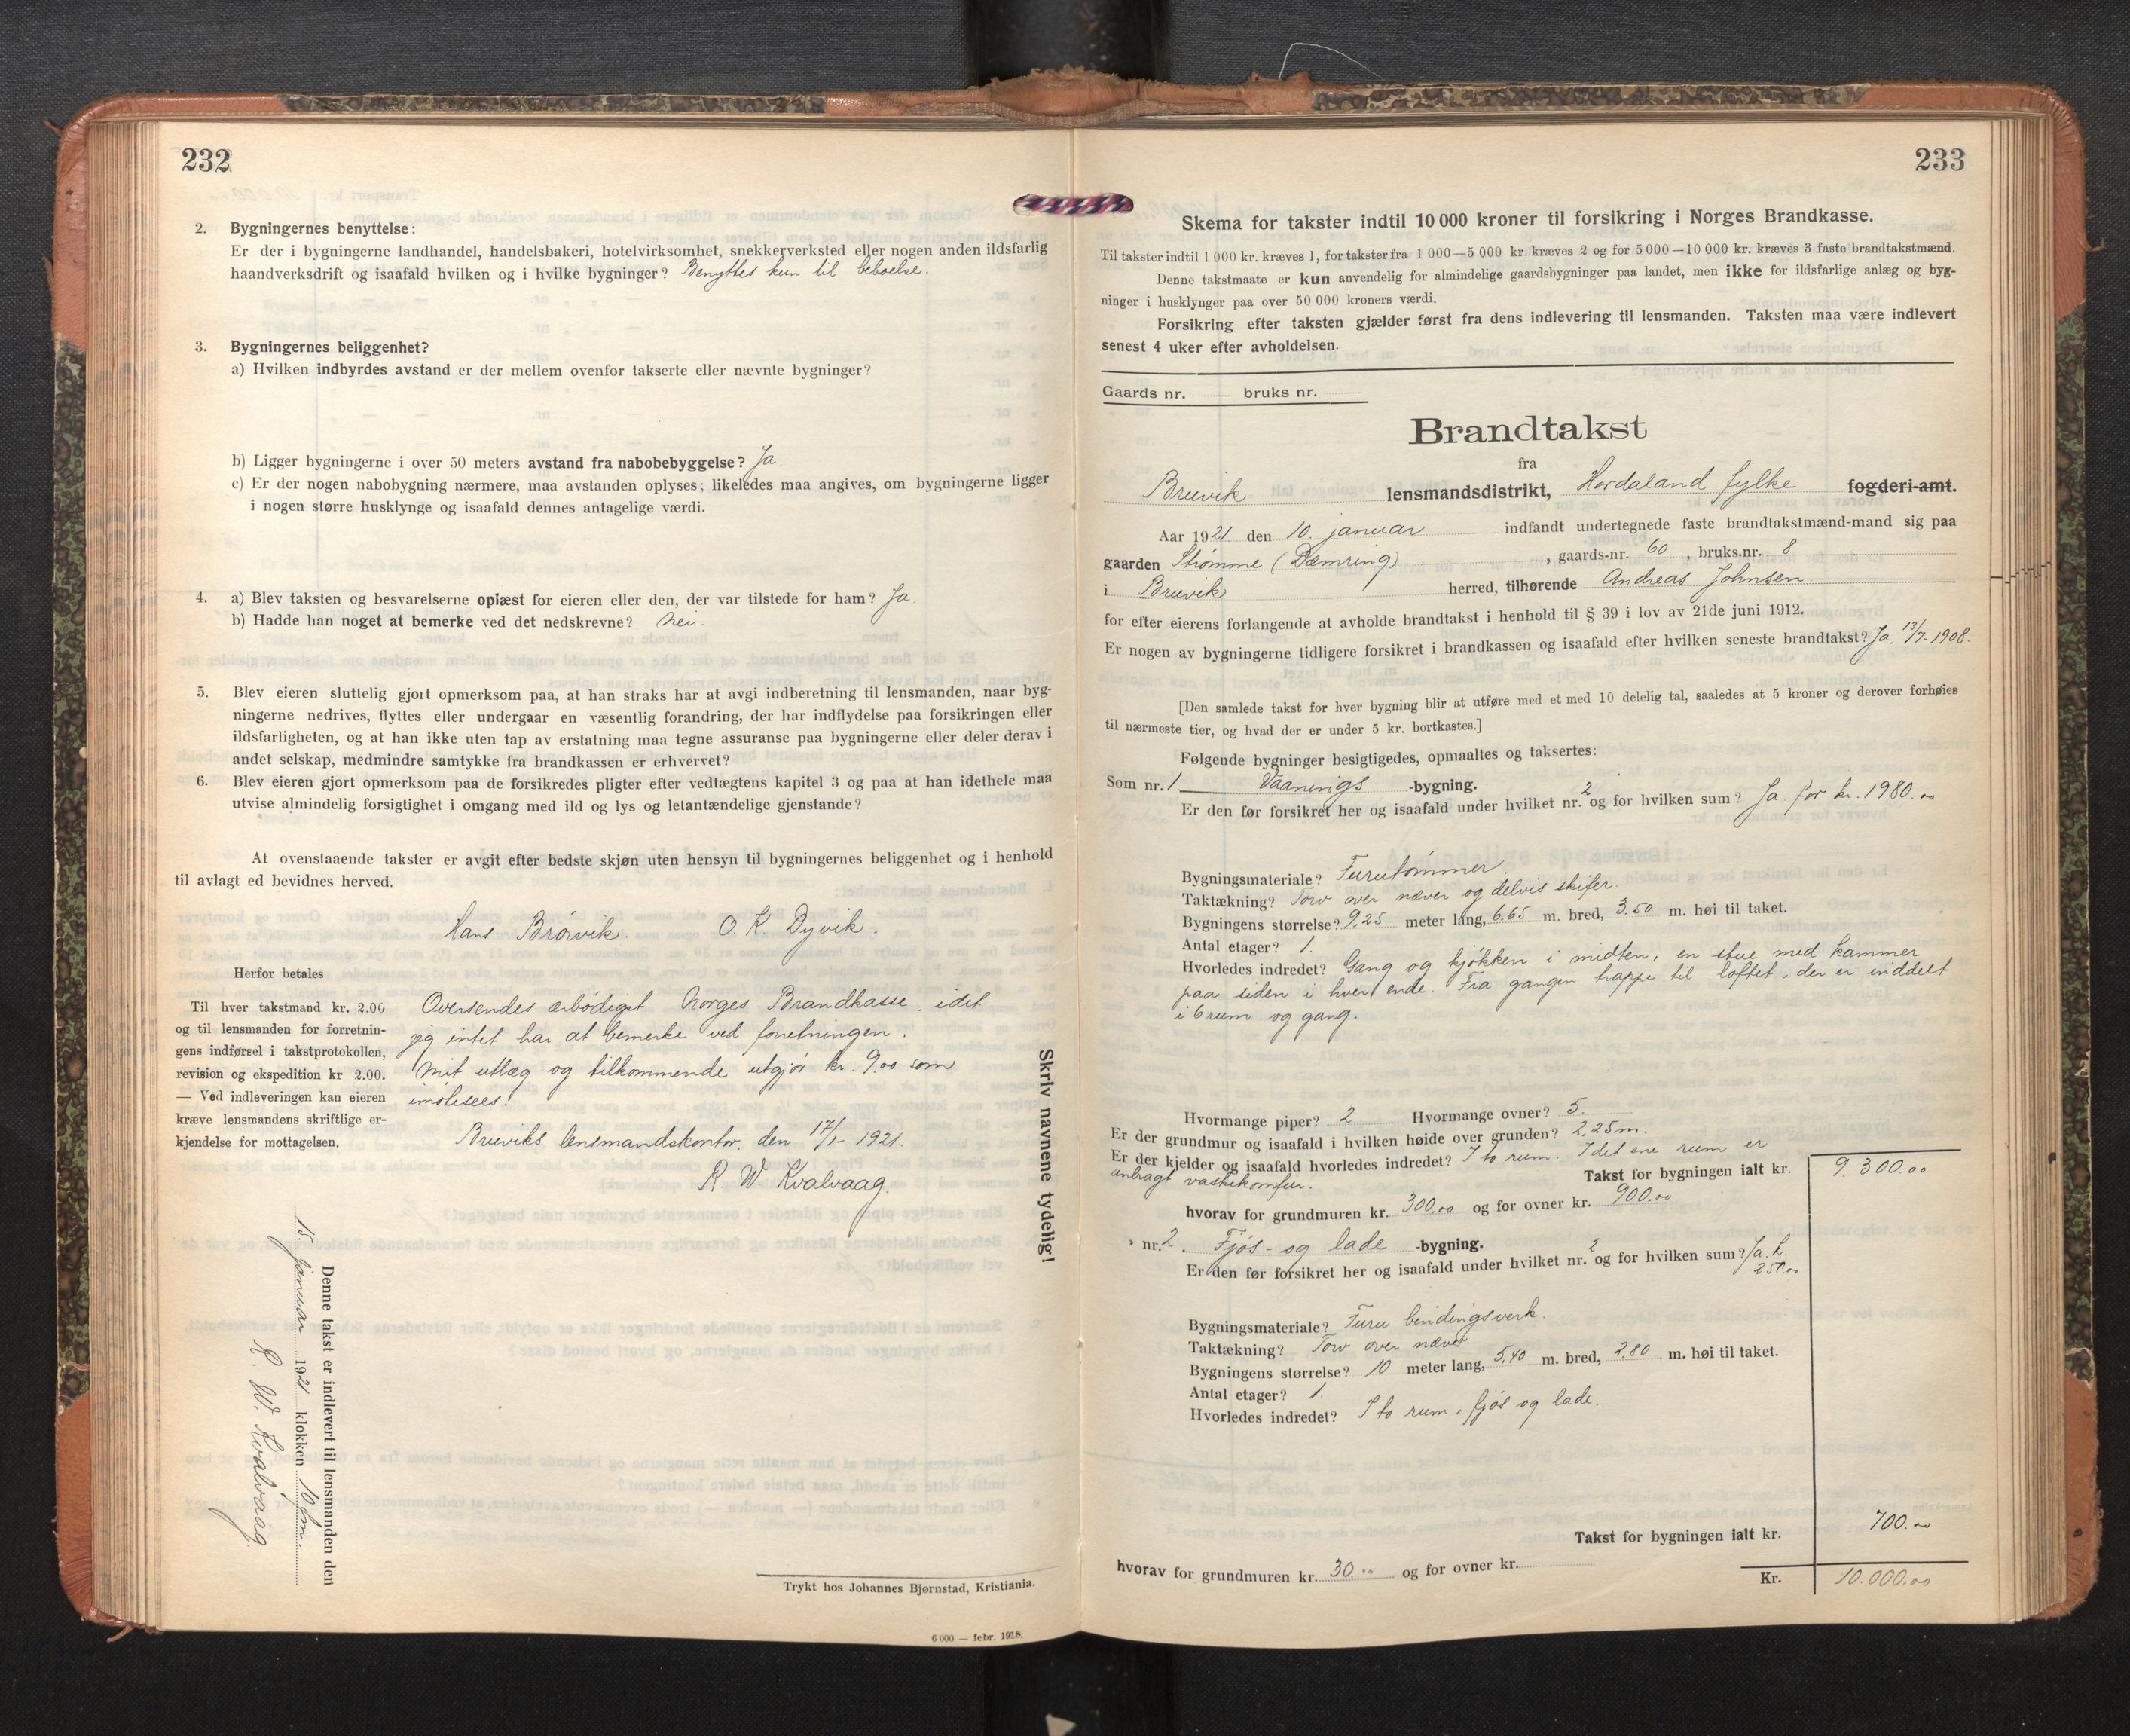 232
2. Bygningernes benyttelse:
Er der i bygningerne landhandel, handelsbakeri, hotelvirksomhet, snekkerverksted eller nogen anden ildsfarlig
haandverksdrift og isaafald hvilken og i hvilke bygninger? Benyttes kun til beboelse.
3. Bygningernes beliggenhet?
a) Hvilken indbyrdes avstand er der mellem ovenfor takserte eller nævnte bygninger?
b) Ligger bygningerne i over 50 meters avstand fra nabobebyggelse? Ja.
c) Er der nogen nabobygning nærmere, maa avstanden oplyses; likeledes maa angives, om bygningerne ligger
i nogen større husklynge og isaafald dennes antagelige værdi.
4. a) Blev taksten og besvarelserne oplæst for eieren eller den, der var tilstede for ham? Ja.
b) Hadde han noget at bemerke ved det nedskrevne? Nei.
5. Blev eieren sluttelig gjort opmerksom paa, at han straks har at avgi indberetning til lensmanden, naar byg-
ningerne nedrives, flyttes eller undergaar en væsentlig forandring, der har indflydelse paa forsikringen eller
ildsfarligheten, og at han ikke uten tap av erstatning maa tegne assuranse paa bygningerne eller deler derav i
andet selskap, medmindre samtykke fra brandkassen er erhvervet?
6. Blev eieren gjort opmerksom paa de forsikredes pligter efter vedtægtens kapitel 3 og paa at han idethele maa
utvise almindelig forsigtighet i omgang med ild og lys og letantændelige gjenstande?
At ovenstaaende takster er avgit efter bedste skjøn uten hensyn til bygningernes beliggenhet og i henhold
til avlagt ed bevidnes herved.
Hans Brørvik. O. K. Dyvik.
Herfor betales
Til hver takstmand kr. 2.00
og til lensmanden for forretnin-
gens indførsel i takstprotokollen,
revision og ekspedition kr 2.00.
— Ved indleveringen kan eieren
kræve lensmandens skriftlige er-
kjendelse for mottagelsen.
Oversendes ærbødigst Norges Brandkasse, idet
jeg intet har at bemerke ved forretningen.
Mit utlæg og tilkommende utgjør kr. 9.00 som
imøtesees.
Bruviks lensmandskontor, den 17/1 1921.
R. W. Kvalvaag.
Skriv navnene tydelig!
Denne takst er indlevert til lensmanden den
15 januar 1921 klokken 10 fm.
R. W. Kvalvaag
Trykt hos Johannes Bjørnstad, Kristiania.
6 000 — febr. 1918.
233
Skema for takster indtil 10 000 kroner til forsikring i Norges Brandkasse.
Til takster indtil 1 000 kr. kræves 1, for takster fra 1 000—5 000 kr. kræves 2 og for 5 000—10 000 kr. kræves 3 faste brandtakstmænd.
Denne takstmaate er kun anvendelig for almindelige gaardsbygninger paa landet, men ikke for ildsfarlige anlæg og byg-
ninger i husklynger paa over 50 000 kroners værdi.
Forsikring efter taksten gjælder først fra dens indlevering til lensmanden. Taksten maa være indlevert
senest 4 uker efter avholdelsen.
Gaards nr. bruks nr.
Brandtakst
fra
Bruvik lensmandsdistrikt, Hordaland fylke fogderi-amt.
Aar 1921 den 10. januar indfandt undertegnede faste brandtakstmænd-mand sig paa
gaarden Strømme (Dæmring), gaards-nr. 60, bruks.nr. 8
i Bruvik herred, tilhørende Andreas Johnsen.
for efter eierens forlangende at avholde brandtakst i henhold til § 39 i lov av 21de juni 1912.
Er nogen av bygningerne tidligere forsikret i brandkassen og isaafald efter hvilken seneste brandtakst? Ja, 13/7. 1908.
[Den samlede takst for hver bygning blir at utføre med et med 10 delelig tal, saaledes at 5 kroner og derover forhøies
til nærmeste tier, og hvad der er under 5 kr. bortkastes.]
Følgende bygninger besigtigedes, opmaaltes og taksertes:
Som nr. 1 Vaanings -bygning.
Er den før forsikret her og isaafald under hvilket nr. 2 og for hvilken sum? Ja for kr. 1980.00
Bygningsmateriale? Furutømmer.
Taktækning? Torv over næver og delvis skifer.
Bygningens størrelse? 9.25 meter lang, 6.65 m. bred, 3.50 m. høi til taket.
Antal etager? 1.
Hvorledes indredet? Gang og kjøkken i midten, en stue med kammer
paa siden i hver ende. Fra gangen trappe til loftet, der er inddelt
i 6 rum og gang.
Hvormange piper? 2 Hvormange ovner? 5.
Er der grundmur og isaafald i hvilken høide over grunden? 2.25 m.
Er der kjelder og isaafald hvorledes indredet? I to rum. I det ene rum er
anbragt vaskekomfur. Takst for bygningen ialt kr. 9.300.00
hvorav for grundmuren kr. 300.00 og for ovner kr. 900.00
" nr. 2. Fjøs- og lade -bygning.
Er den før forsikret her og isaafald under hvilket nr. 2 og for hvilken sum? Ja. kr.
250.00
Bygningsmateriale? Furu bindingsverk.
Taktækning? Torv over næver.
Bygningens størrelse? 10 meter lang, 5.40 m. bred, 2.80 m. høi til taket.
Antal etager? 1.
Hvorledes indredet? I to rum, fjøs og lade.
Takst for bygningen ialt kr. 700.00
hvorav for grundmuren kr. 30.00 og for ovner kr.
Kr. 10.000.00